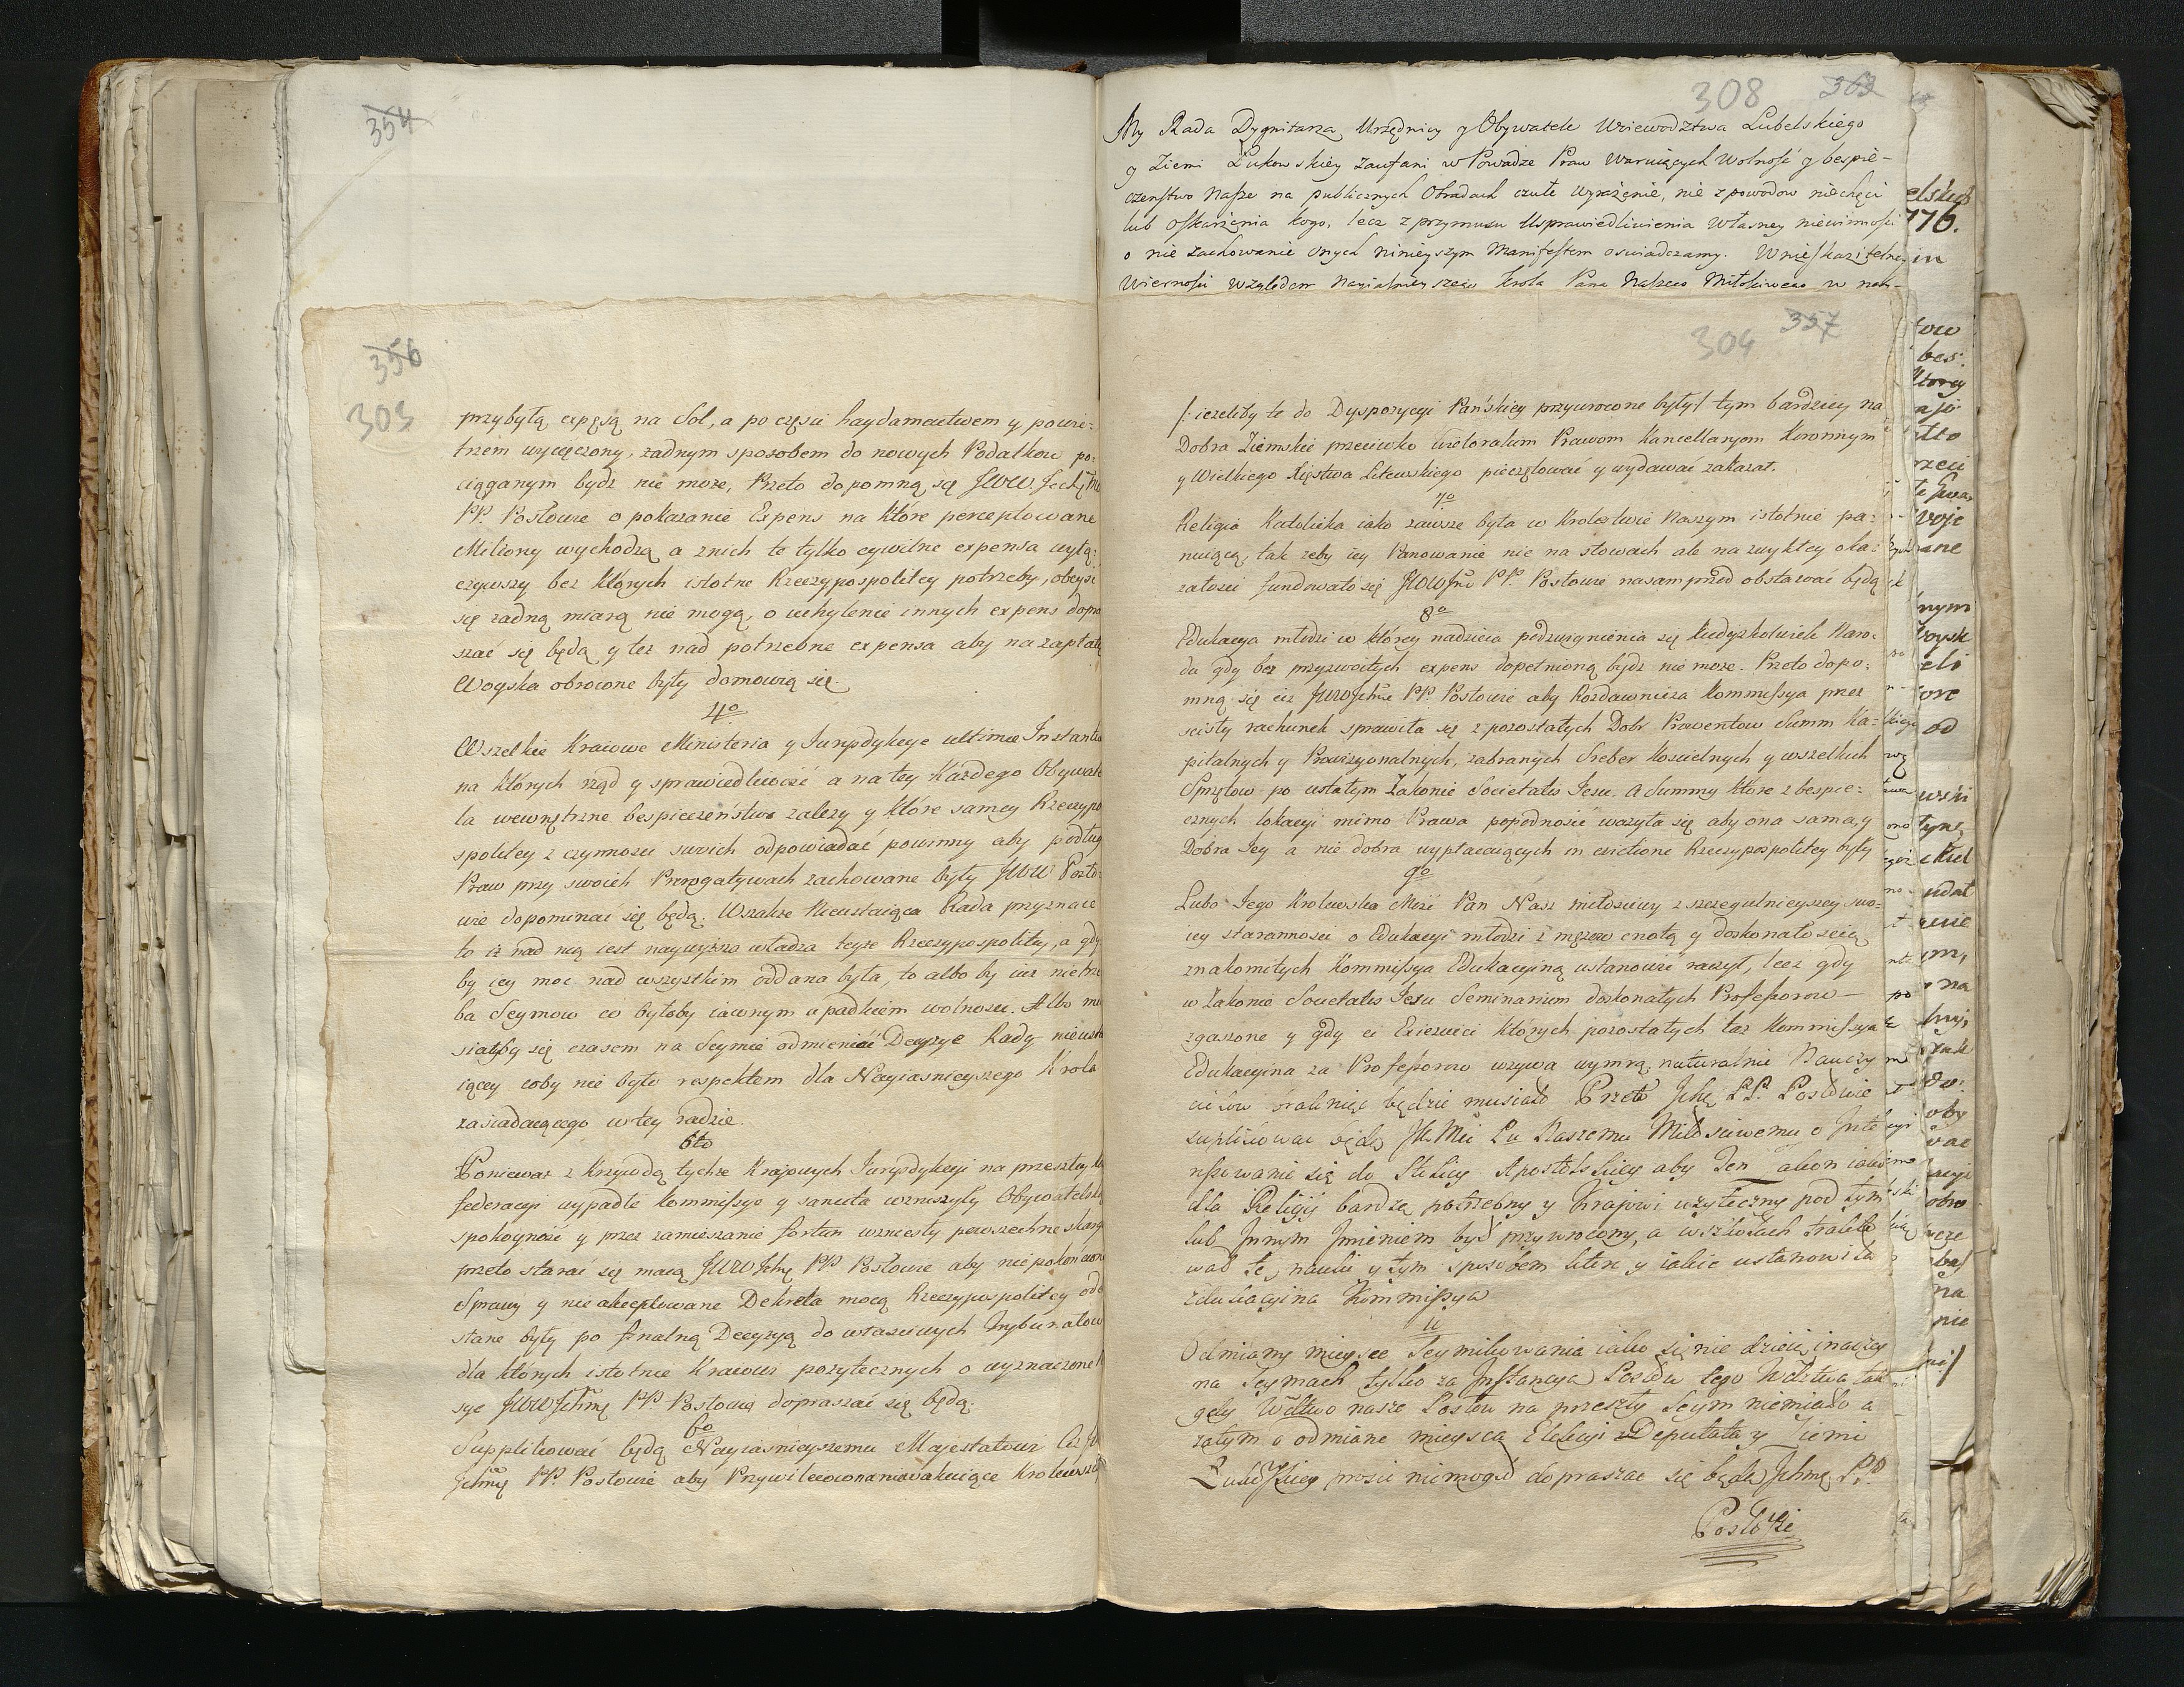 354
356
303
przybyłą expęsą na Sol, a po częsci haydamactwem y powie:
trzem wycięczony, zadnym sposobem do nowych Podatkow po:
ciąganym bydz nie moze, Przeto dopomną się JWW. Jchmę
PP. Posłowie o pokazanie Expens na które perceptowane
Miliony wychodzą a znich te tylko cywilne expensa wyłą:
czywszy bez których istotne Rzeczypospolitey potrzeby, obeysc
się zadną miarą nie mogą, o uchylenie innych expens dopra
szać się będą y tez nad potrzebne expensa aby na zapłatę
Woyska obrocone były domowią się.
4o
Wszelkie Kraiowe Ministeria y Jurysdykcye ultimæ Instantiæ
na których rząd y sprawiedliwość a na tey Kazdego Obywate
la wewnętrzne bespieczeństwo zalezy y które samey Rzeczypo
spolitey z czynnosci swoich odpowiadać powinny aby podług
Praw przy swoich Prerogatywach zachowane były JWW Posło
wie dopominać się będą. Wszakze Nieustaiąca Rada przyznaie
to iz nad nią iest naywyższa władza teyze Rzeczypospolitey, a gdy
by iey moc nad wszystkim oddana była, to albo by iuz nie trze
ba Seymow co byłoby iawnym upadkiem wolnosci. Albo mu
siałby się czasem na Seymie odmieniać Decyzye Rady nieusta
iącey coby nie było respektem dla Nayiasnieyszego Krola
zasiadaiącego w tey radzie.
5to
Poniewaz z Krzywdą tychze Kraiowych Jurysdykcyi na przeszłey Ko
federacyi wypadłe Kommissye y sancita wzruszyły Obywatelską
spokoyność y przez zamieszanie fortun wzniesły powszechne skargi
przeto starać się maią JWWJchmę PP. Posłowie aby niepokonczone
Sprawy y nieakceptowane Dekreta mocą Rzeczypospolitey ode
słane były po finalną Decyzyą do własciwych Trybunałow
dla których istotnie Kraiowi pozytecznych o wyznaczenie
sye JWWJchmę PP. Posłowie dopraszać się będą.
6o
Supplikować będą Nayiasnieyszemu Majestatowi
Jchmę PP. Posłowie aby Przywileiow Krolewszczy
308 363
My Rada Dygnitarza Urzędnicy y Obywatele Woiewodztwa Lubelskiego
y Ziemi Łukowskiey zaufani w Powadze Praw Waruiących Wolność y bespie-
czenstwo Nasze na publicznych Obradach czułe wyrażenie, nie z powodow niechęci
lub oskarżenia kogo, lecz z przymusu Usprawiedliwienia własney niewinności
o nie zachowanie onych ninieyszym Manifestem oswiadczamy. W nieskazitelney
Wierności względem Nayiasnieyszego Krola Pana Naszego Miłosciwego w nay-
304 357
/: iezeliby te do Dyspozycyi Pańskiey przywrocone były:/ tym bardziey na
Dobra Ziemskie przeciwko wieloralim Prawom Kancellaryom Koronnym
y Wielkiego Xięstwa Litewskiego pieczętować y wydawać zakazał.
7o
Religia Katolicka iako zawsze była w Krolestwie Naszym istotnie pa:
nuiącą, tak zeby iey Panowanie nie na słowach ale na zwykłey oka:
załosci fundowało się JWWJmć PP. Posłowie nasamprzod obstawać będą
8o
Edukacya młodzi w którey nadzieia podzwignienia się kiedyzkolwiek Naro:
du gdy bez przyzwoitych expens dopełnioną bydz nie moze. Przeto dopo:
mną się ciż JWWJchmę PP. Posłowie aby Rozdawnicza Kommissya przez
scisły rachunek sprawiła się z pozostałych Dobr Prowentow Summ Ka:
pitalnych y Prowizyonalnych, zabranych Sreber Koscielnych y wszelkich
Sprzętow po ustałym Zakonie Societatis Jesu. A Summy które z bespie:
cznych lokacyi mimo Prawa popodnosić wazyła się aby ona sama, y
Dobra Jey a nie dobra wypłacaiących in evictione Rzeczypospolitey były
9o
Lubo Jego Krolewska Mość Pan Nasz miłosciwy z szczegulnieyszey swo:
iey starannosci o Edukacyi młodzi z męzow cnotą y doskonałoscią
znakomitych Kommissya Edukacyiną ustanowić raczył, lecz gdy
w Zakonie Societatis Jesu Seminarium doskonałych Professorow
zgaszone y gdy ci Exiezuici których pozostałych taz Kommissya
Edukacyina za Professorow wzywa wymrą, naturalnie Nauczy
cielow braknąć będzie musiało Przeto Jchę PP. Posłowie
supplikować będą JKMci Pu Naszemu Miłosciwemu o Inte
ressowanie się do Stolicy Apostolskiey aby Ten Zakon iako
dla Religij bardzo potrzebny y Kraiowi uzyteczny pod tym
lub Innym Imieniem był przywrocony, a w szkołach trakto
wał te nauki y tym sposobem które y iakie ustanowiła
Edukacyina Kommissya
10
Odmiany mieysce Seymikowania iako się nie dzieią inaczey
na Seymach tylko za Instancya Posłow tego Wdztwa tak
gdy Wdztwo nasze Posłow na przeszły Seym niemiało a
zatym o odmiane mieysca Elekcyi Deputata y Ziemi
Łukowskiey prosic niemogło dopraszac się będą Jchmę PP.
Posłowie
elskiego
776.
in